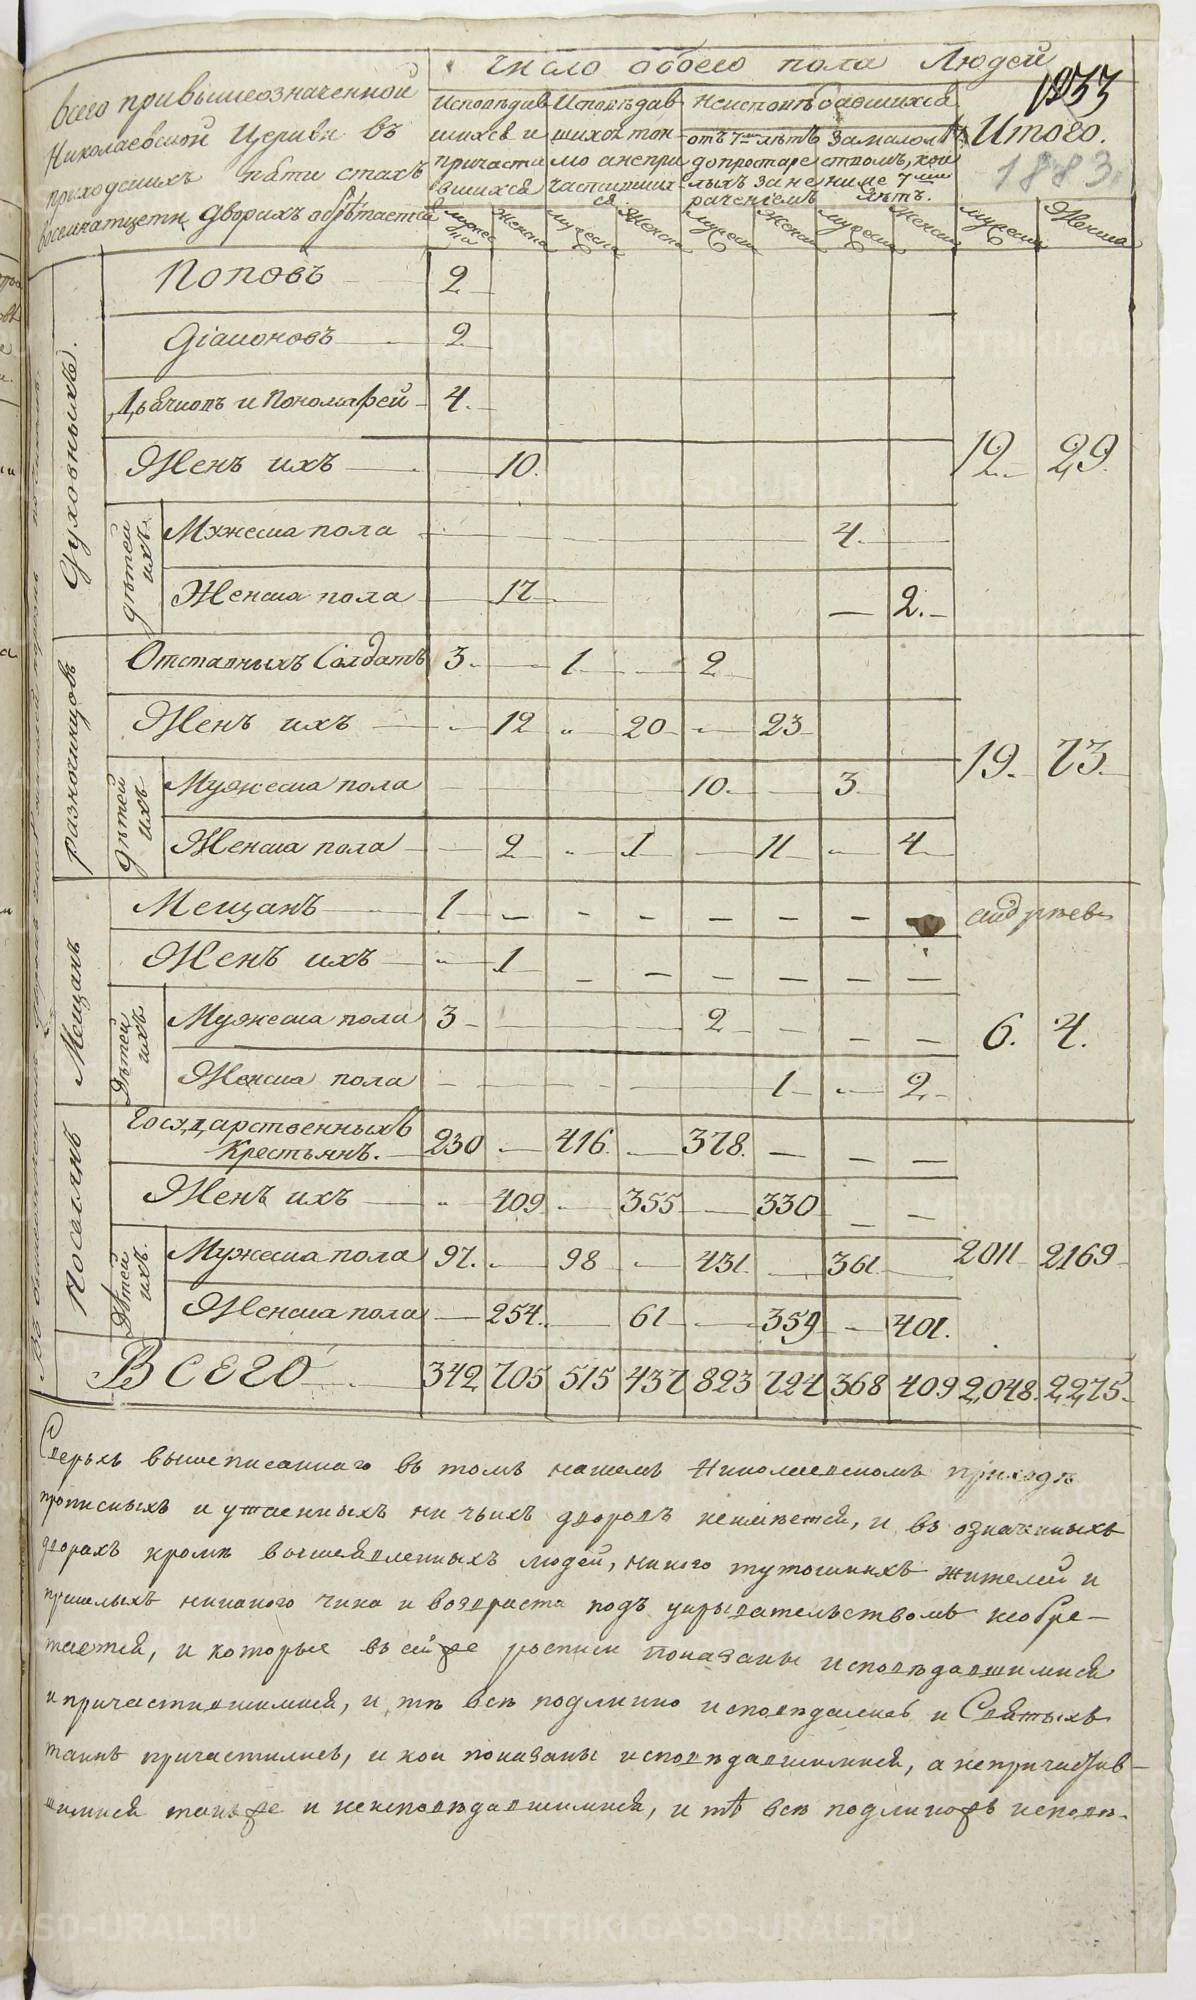 Число обоего пола Людей
1233
Всего при вышеозначенной
Николаевской Церкви въ
приходскихъ пяти стахъ
восемнатцети дворахъ обрѣтается
Исповѣдав
шихся и
причасти
вшихся
Исповѣдав
шихся ток
мо а непри
частивших
ся
Неисповѣдавшихся
отъ 7ми лѣтъ
до престаре
лыхъ за не
рачениемъ
За малолѣ
тствомъ, кои
ниже 7ми
лѣтъ.
Итого.
1883.
мужеска женска мужеска женска мужеска женска мужеска женска мужеска женска
Духовныхъ.
Поповъ 2
Діаконовъ 2
Дьячковъ и Пономарей 4.
Женъ ихъ 10.
12. 29.
дѣтей ихъ.
Мужеска пола 4.
Женска пола 17 2.
разночинцовъ
Отставныхъ Солдатъ 3. 1 2
Женъ ихъ 12 20 23
19. 73.
дѣтей ихъ
Мужеска пола 10. 3
Женска пола 2 1 11 4
Мещанъ
Мещанъ 1
Женъ ихъ 1
6. 4.
Дѣтей ихъ
Мужеска пола 3 2
Женска пола 1 2
Поселянъ
Государственныхъ
Крестьянъ. 230 416. 378.
Женъ ихъ 409 355 330
2011 2169
Дѣтей ихъ.
Мужеска пола 97. 98 431 361
Женска пола 254. 61 359 401.
Всего 342 705 515 437 823 724 368 409 2,048. 2,275.
Сверхъ вышеписаннаго въ томъ нашемъ Николаевскомъ приходѣ
прописныхъ и утаенныхъ ни чьихъ дворовъ неимѣется, и въ означенныхъ
дворахъ кромѣ вышеявленныхъ людей, никого тутошнихъ жителей и
пришлыхъ никакого чина и возраста подъ укрывательствомъ необре-
тается, и которые въ сей же росписи показаны исповѣдавшимися
и причастившимися, и тѣ всѣ подлинно исповѣдались и Святыхъ
таинъ причастились, и кои показаны исповѣдавшимися, а непричастив-
шимися також де и неисповѣдавшимися, и тѣ всѣ подлинožъ исповѣ-
METRIKI.GASO-URAL.RU